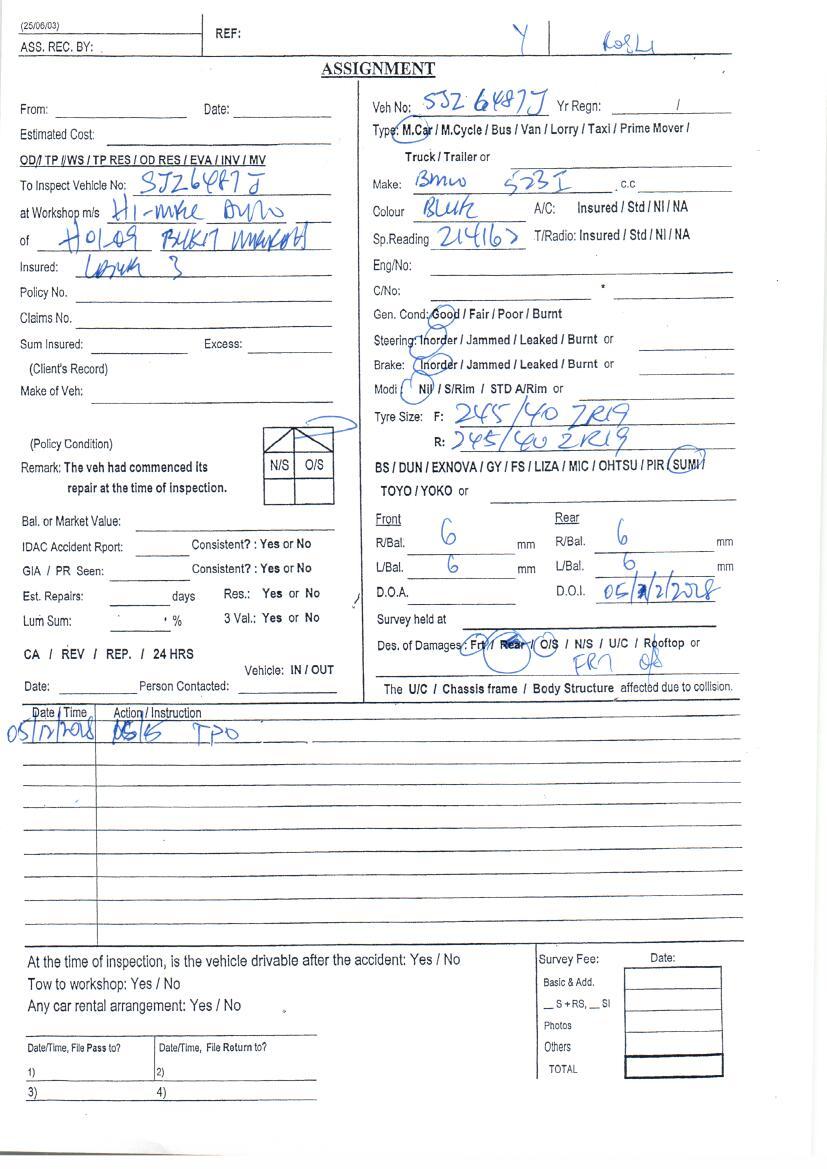 (25/06/03)
ASS. REC. BY:
REF:
Y
ASSIGNMENT
From: Date:
Estimated Cost:
OD / TP / WS / TP RES / OD RES / EVA / INV / MV
To Inspect Vehicle No: SJZ6487J
at Workshop m/s
of
Insured:
Policy No.
Claims No.
Sum Insured: Excess:
(Client's Record)
Make of Veh:
(Policy Condition)
Remark: The veh had commenced its
repair at the time of inspection.
N/S O/S
Bal. or Market Value:
IDAC Accident Rport: Consistent? : Yes or No
GIA / PR Seen: Consistent? : Yes or No
Est. Repairs: days Res.: Yes or No
Lum Sum: % 3 Val.: Yes or No
CA / REV / REP. / 24 HRS
Vehicle: IN / OUT
Date: Person Contacted:
Veh No: SJZ 6487J Yr Regn: /
Type: M.Car / M.Cycle / Bus / Van / Lorry / Taxi / Prime Mover /
Truck / Trailer or
Make: BMW 523I c.c
Colour A/C: Insured / Std / NI / NA
Sp.Reading T/Radio: Insured / Std / NI / NA
Eng/No:
C/No: *
Gen. Cond: Good / Fair / Poor / Burnt
Steering: Inorder / Jammed / Leaked / Burnt or
Brake: Inorder / Jammed / Leaked / Burnt or
Modi: Nil / S/Rim / STD A/Rim or
Tyre Size: F: 245/40 ZR19
R: 245/40 ZR19
BS / DUN / EXNOVA / GY / FS / LIZA / MIC / OHTSU / PIR / SUMI /
TOYO / YOKO or
Front Rear
R/Bal. 6 mm R/Bal. 6 mm
L/Bal. 6 mm L/Bal. 6 mm
D.O.A. D.O.I. 05/12/2018
Survey held at
Des. of Damages: Frt / Rear / O/S / N/S / U/C / Rooftop or
FRT O/S
The U/C / Chassis frame / Body Structure affected due to collision.
Date / Time Action / Instruction
05/12/2018
At the time of inspection, is the vehicle drivable after the accident: Yes / No
Tow to workshop: Yes / No
Any car rental arrangement: Yes / No
Date/Time, File Pass to? Date/Time, File Return to?
1) 2)
3) 4)
Survey Fee: Date:
Basic & Add.
__ S + RS, __ SI
Photos
Others
TOTAL